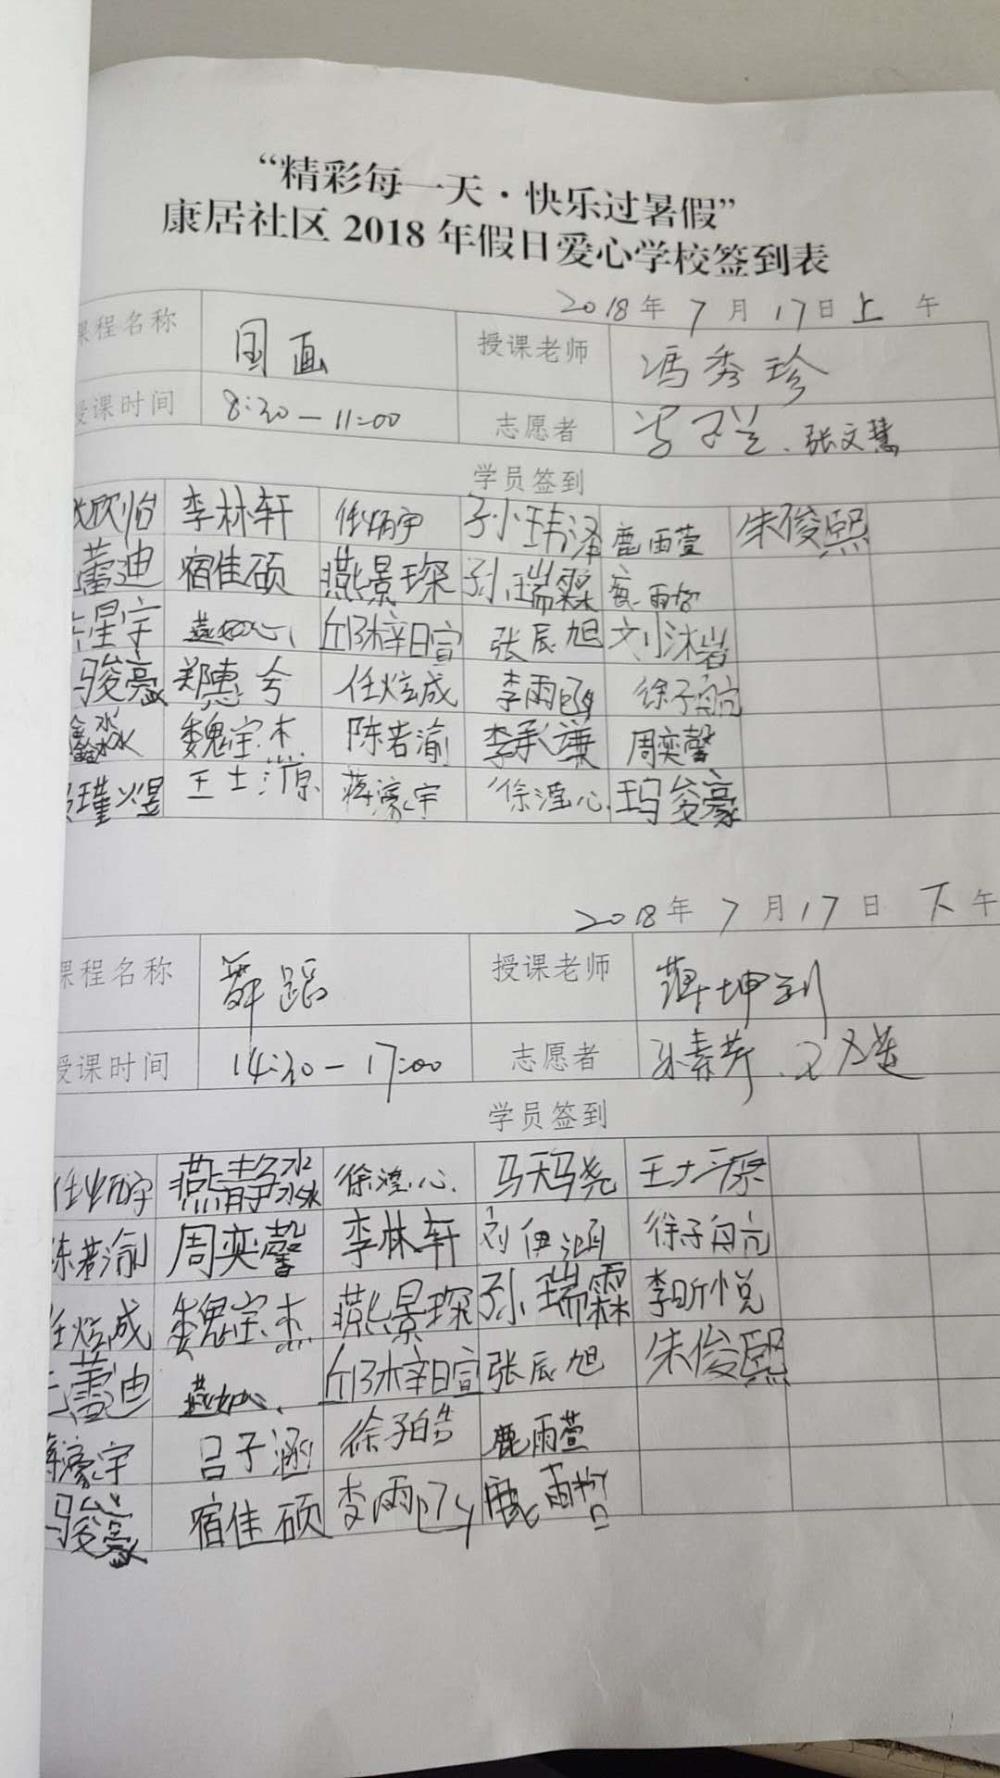 “精彩每一天·快乐过暑假”
康居社区 2018 年假日爱心学校签到表
2018年 7 月 17日 上 午
课程名称 国画 授课老师 冯秀珍
授课时间 8:30—11:00 志愿者 张文慧
学员签到
欣怡 李林轩 任炳宇 孙玮泽 鹿雨萱 朱俊熙
蕾迪 宿佳硕 燕景琛 孙瑞霖
星宇 燕如心 邱梓暄 张辰旭 刘沐岩
马骏豪 郑惠兮 任炫成 李雨函 徐子航
魏宗杰 陈若渝 李承谦 周奕馨
瑾煜 王士源 蒋濠宇 徐滢心 玛骏豪
2018年 7 月 17日 下 午
课程名称 舞蹈 授课老师
授课时间 14:30—17:00 志愿者
学员签到
任炳宇 徐滢心 马天尧 王士源
陈若渝 周奕馨 李林轩 刘伊涵 徐子航
任炫成 魏宗杰 燕景琛 孙瑞霖 李昕悦
蕾迪 燕如心 邱梓暄 张辰旭 朱俊熙
蒋濠宇 吕子涵 徐子皓 鹿雨萱
马骏豪 宿佳硕 李雨